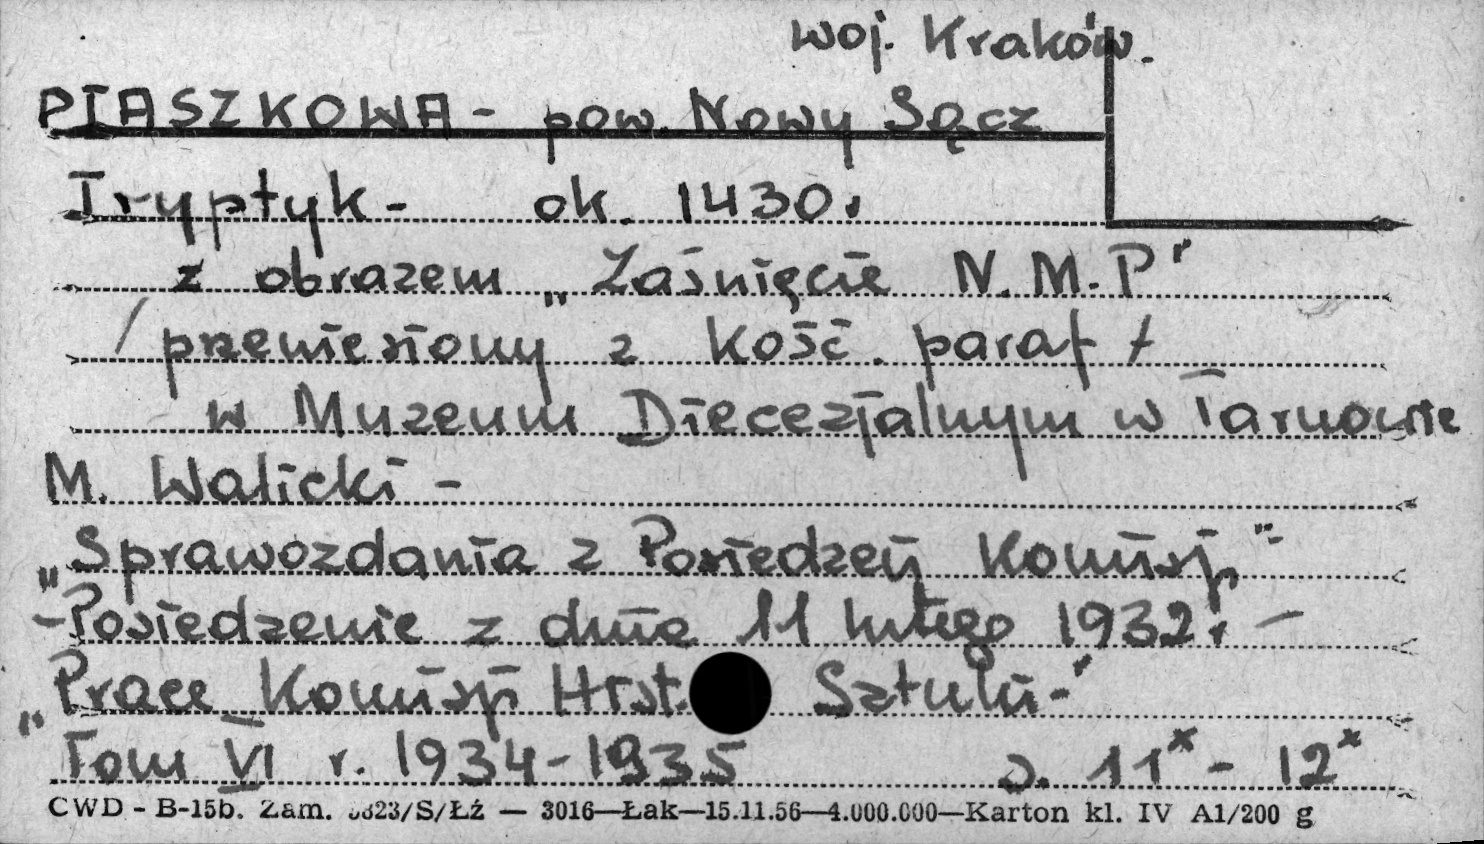 woj. Kraków.
PIASZKOWA - pow. Nowy Sącz
Tryptyk - ok. 1430.
z obrazem „Zaśnięcie N.M.P"
/przeniesiony z kość. paraf/
w Muzeum Diecezjalnym w Tarnowie
M. Walicki -
„Sprawozdania z Posiedzeń Komisji" -
- Posiedzenie z dnia 11 lutego 1932r. -
„Prace Komisji Hist. Sztuki -"
Tom VI r. 1934-1935 s. 11* - 12*
CWD - B-15b. Zam. 6823/S/Łź — 3016—Łak—15.11.56—4.000.000—Karton kl. IV A1/200 g